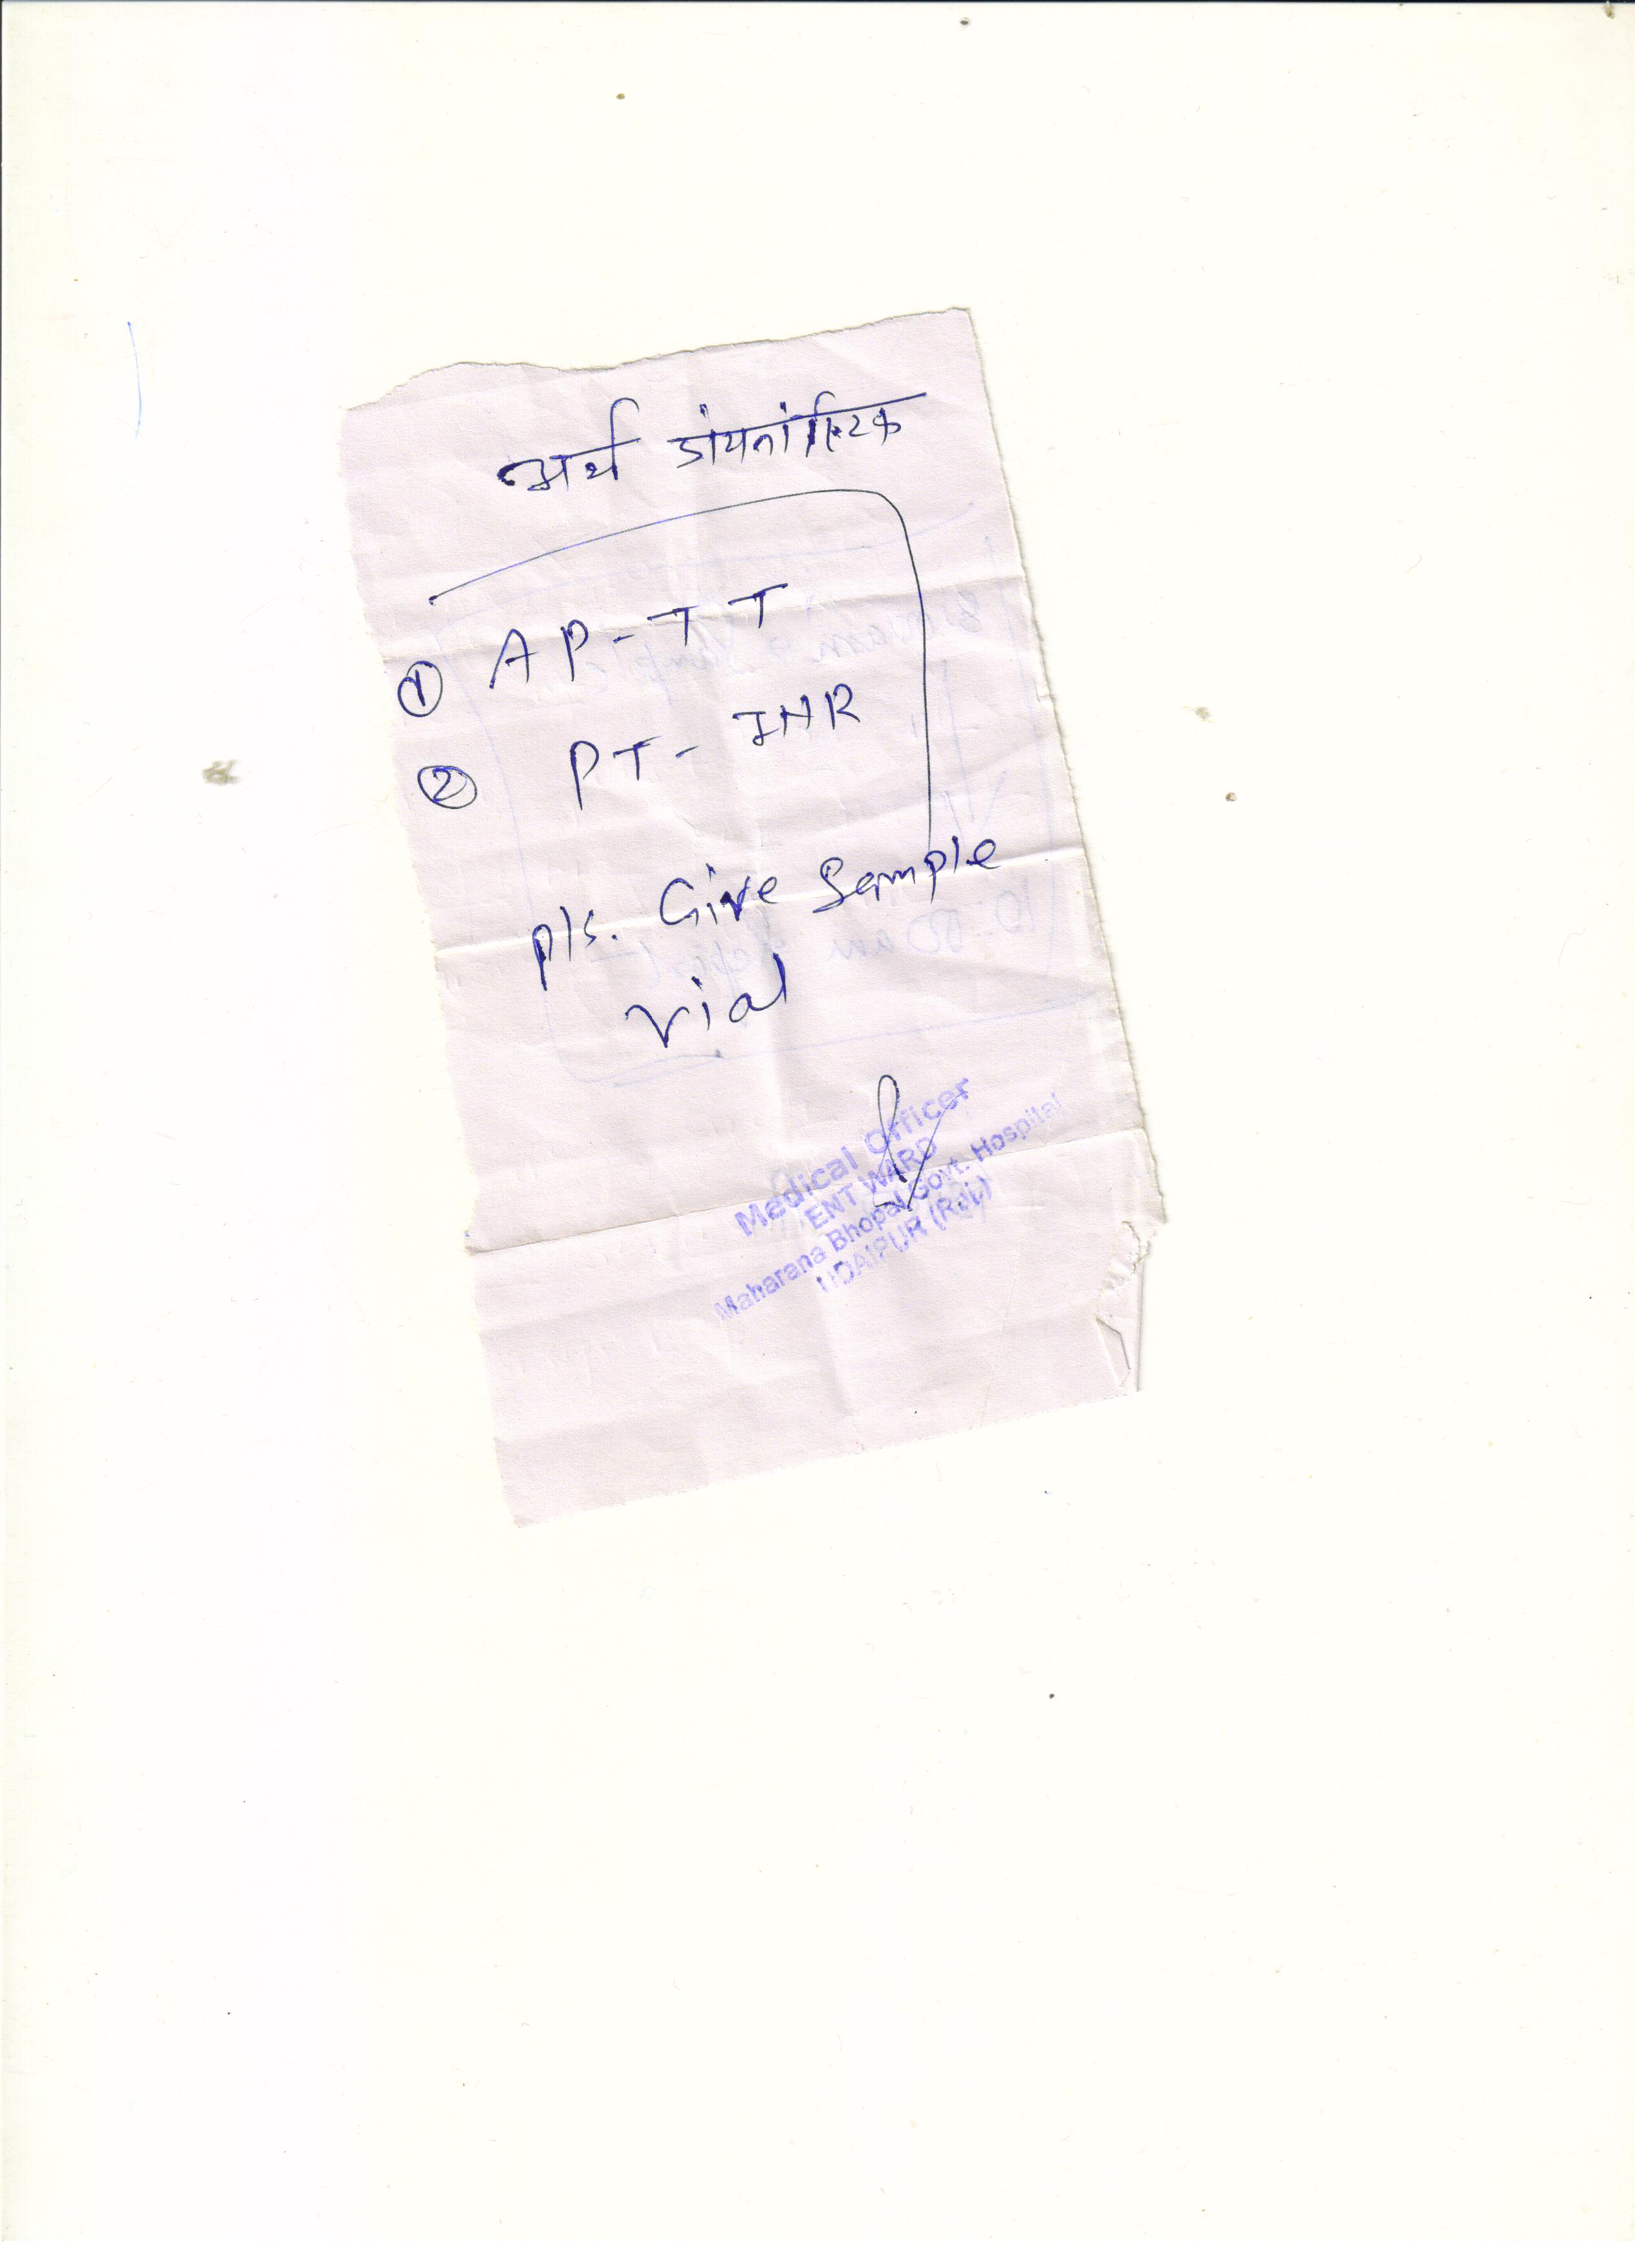 अर्थ डायनोस्टिक
① AP-TT
② PT-INR
pls. Give Sample
Vial
Medical Officer
ENT WARD
Maharana Bhopal Govt. Hospital
UDAIPUR (Raj.)